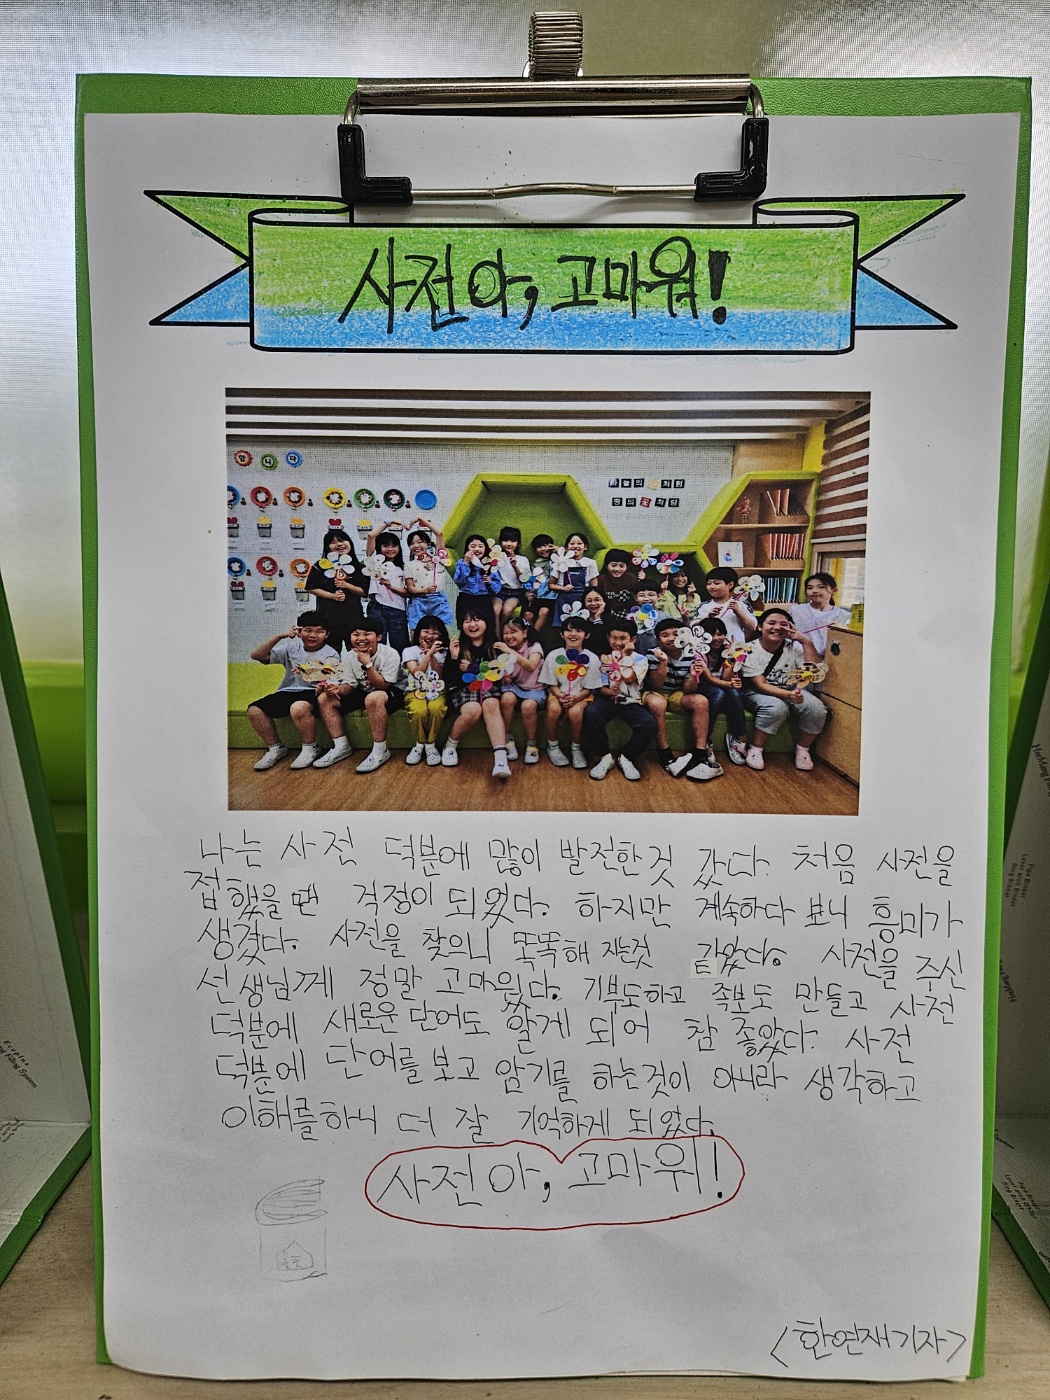 사전아, 고마워!
나는 사전 덕분에 많이 발전한것 같다. 처음 사전을
접했을 땐 걱정이 되었다. 하지만 계속하다 보니 흥미가
생겼다. 사전을 찾으니 똑똑해 지는것 같았다. 사전을 주신
선생님께 정말 고마웠다. 기부도하고 족보도 만들고 사전
덕분에 새로운 단어도 알게 되어 참 좋았다. 사전
덕분에 단어를 보고 암기를 하는것이 아니라 생각하고
이해를하니 더 잘 기억하게 되었다.
사전아, 고마워!
<한연재기자>